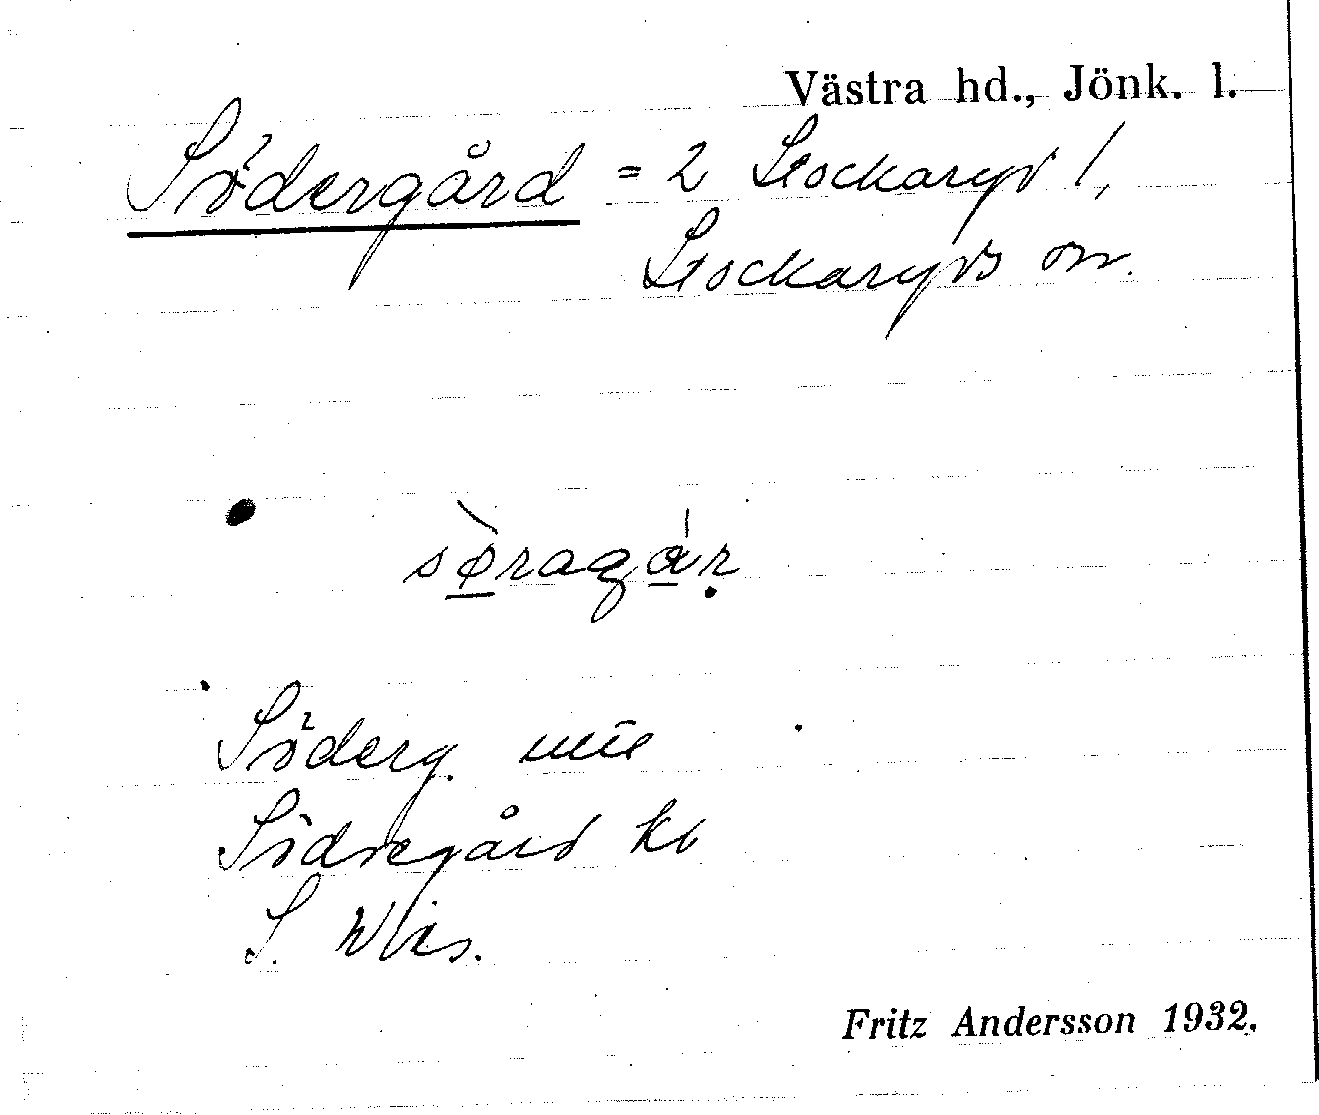 Västra hd., Jönk. l.
Södergård = 2 Stockaryd 1,
Stockaryds sn.
sø̀ragár
Söderg.
Södregård kb
S.
Fritz Andersson 1932.